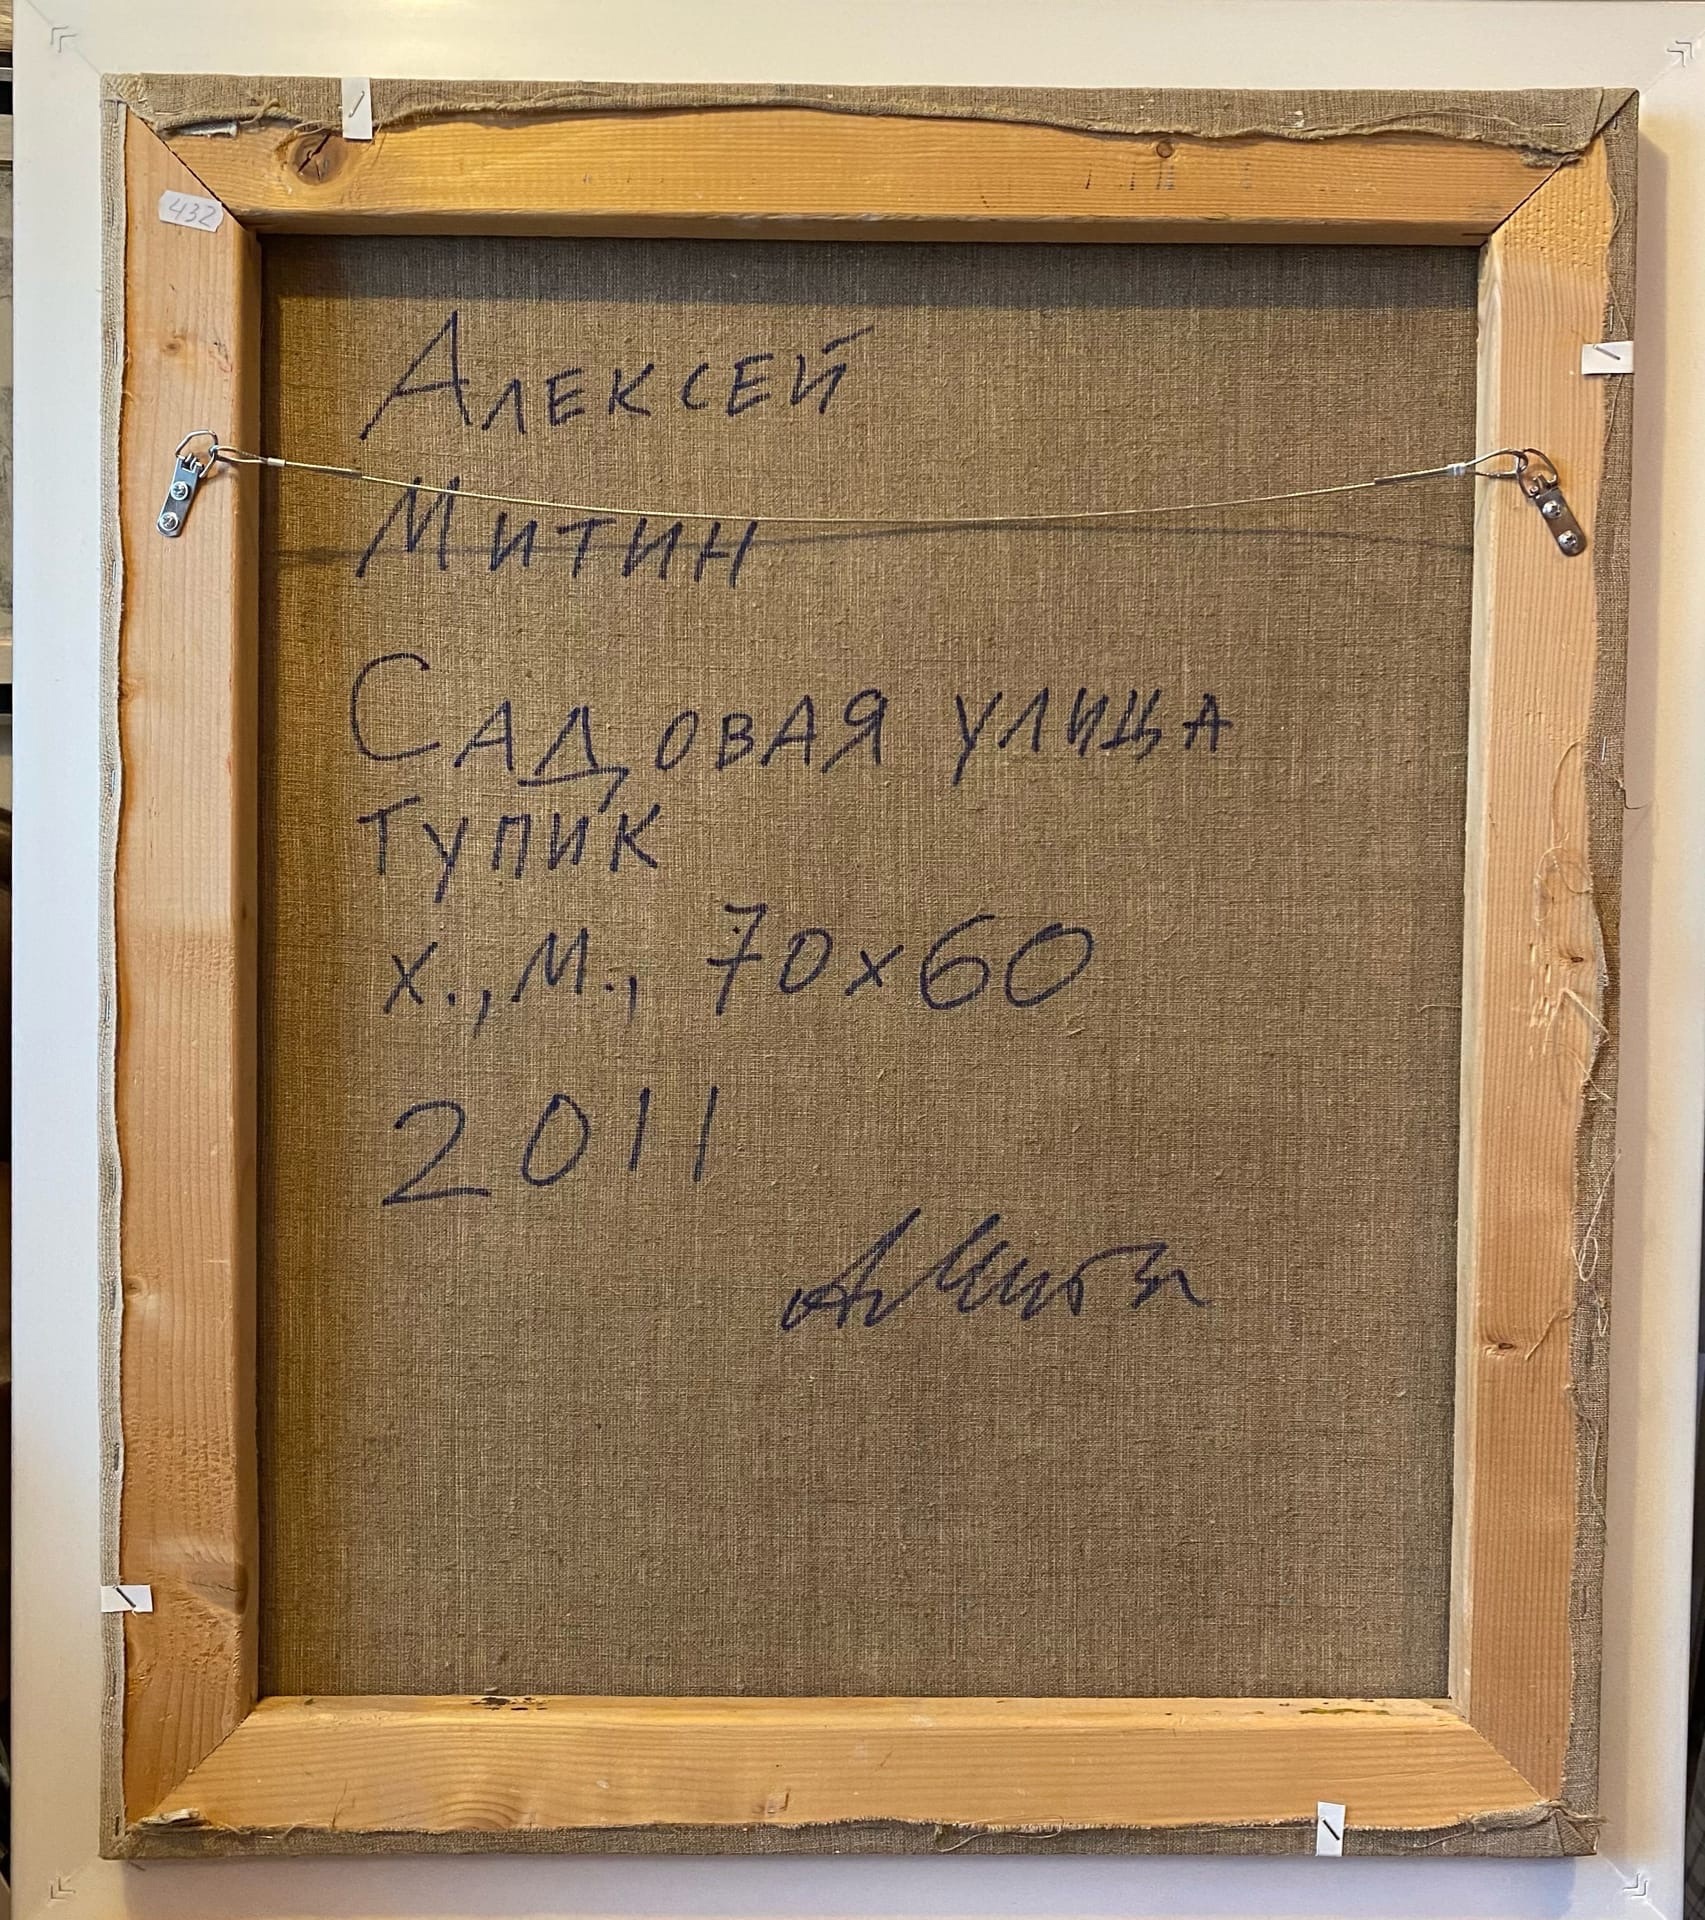 432
Алексей
Митин
Садовая улица
тупик
х., м., 70х60
2011